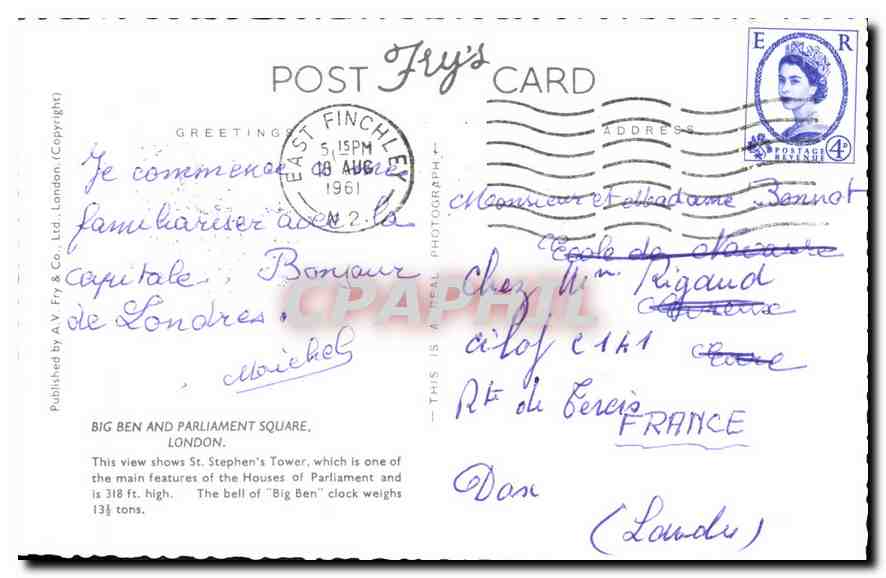 POST Fry's CARD
E R
POSTAGE
REVENUE
4D
GREETINGS
ADDRESS
EAST FINCHLEY
5.15PM
18 AUG
1961
N.2.
Je commence à me
familiariser avec la
capitale. Bonjour
de Londres.
Michel
Monsieur et Madame Bonnot
Ecole de Navarre
Chez Mme Rigaud
Evreux
cilof C141
Eure
Rte de Tercis
FRANCE
Dax
(Landes)
CPAPHIL
THIS IS A REAL PHOTOGRAPH
Published by A.V. Fry & Co., Ltd., London. (Copyright)
BIG BEN AND PARLIAMENT SQUARE,
LONDON.
This view shows St. Stephen's Tower, which is one of
the main features of the Houses of Parliament and
is 318 ft. high. The bell of "Big Ben" clock weighs
13½ tons.